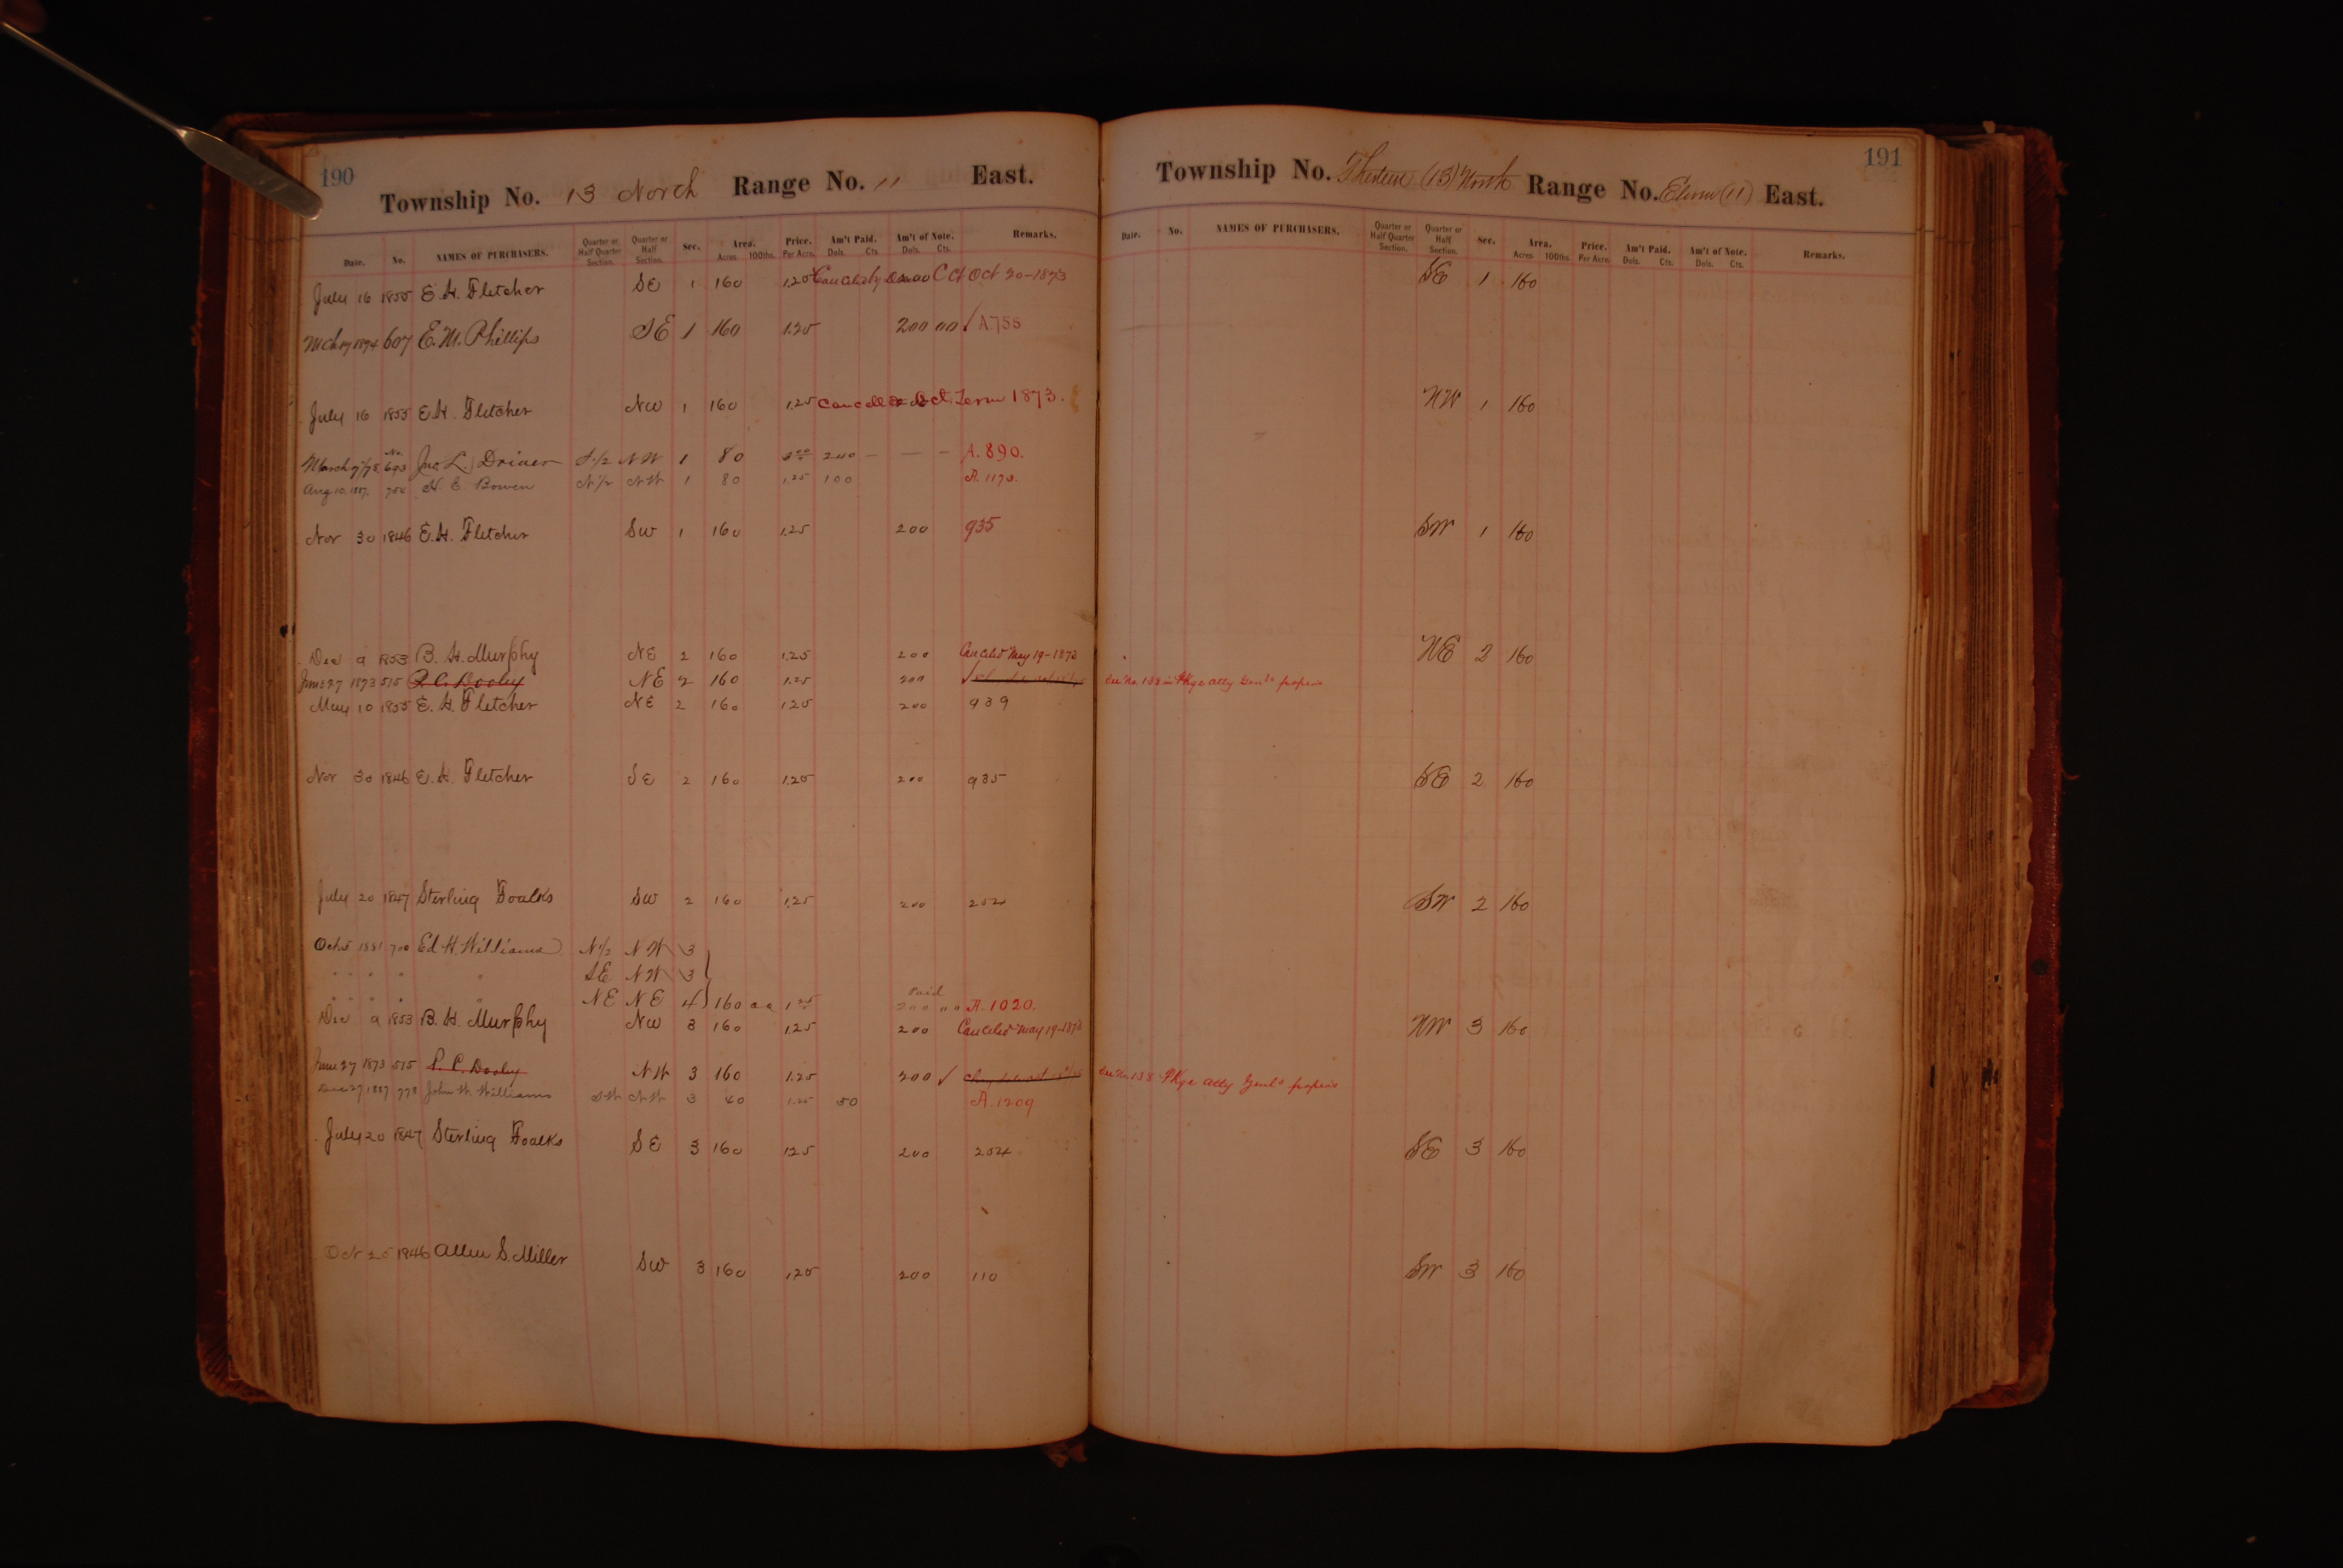 190
Township No. 13 North Range No. 11 East.
Date. No. NAMES OF PURCHASERS. Quarter or Half Quarter Section. Quarter or Half Section. Sec. Area. Acres 100ths. Price. Per Acre. Am't Paid. Dols. Cts. Am't of Note. Dols. Cts. Remarks.
July 16 1855 E. H. Fletcher SE 1 160 1.25 Ct Oct 20-1873
Mch 1894 607 E. M. Phillips SE 1 160 1.25 200 00 √ A 755
July 16 1855 E. H. Fletcher NW 1 160 1.25 Term 1873.
March 7/78 No. 693 Jno. L. Driver S 1/2 NW 1 80 240 — — — A. 890.
Aug 10, 1887. H. E. Bowen N 1/2 NW 1 80 1.25 100
Nov 30 1846 E. H. Fletcher SW 1 160 1.25 200 935
Dec 9 1853 B. H. Murphy NE 2 160 1.25 200 Canceled May 19-1873
June 27 1873 515 P. C. Dooley NE 2 160 1.25 200 √
May 10 1855 E. H. Fletcher NE 2 160 1.25 200 939
Nov 30 1846 E. H. Fletcher SE 2 160 1.25 200 935
July 20 1847 Sterling Foalks SW 2 160 1.25 200 204
Oct 5 1881 700 Ed H. Williams N 1/2 NW 3
" " " " " SE NW 3
" " " " " NE NE 4 160 00 1 25 Paid 200 00 A. 1020.
Dec 9 1853 B. H. Murphy NW 3 160 1.25 200 Canceled May 19-1873
June 27 1873 515 P. C. Dooley NW 3 160 1.25 200 √
Dec 27 1887 778 John W. Williams SW NW 3 40 1.25 50 A. 1209
July 20 1847 Sterling Foalks SE 3 160 1.25 200 204
Oct 25 1846 Allen S. Miller SW 3 160 1.25 200 110
191
Township No. Thirteen (13) North Range No. Eleven (11) East.
Date. No. NAMES OF PURCHASERS. Quarter or Half Quarter Section. Quarter or Half Section. Sec. Area. Acres 100ths. Price. Per Acre. Am't Paid. Dols. Cts. Am't of Note. Dols. Cts. Remarks.
SE 1 160
NW 1 160
SW 1 160
NE 2 160
See No. 138 in Pkge Atty Genl's papers
SE 2 160
SW 2 160
NW 3 160
See No. 138 Pkge Atty Genl's papers
SE 3 160
SW 3 160